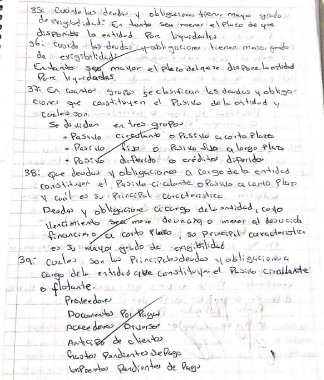 35: Cuando las deudas y obligaciones tienen mayor grado
de exigibilidad: En tanto sea menor el plazo de que
disponible la entidad para liquidarlas
36: Cuando las deudas y obligaciones tienen menor grado
de exigibilidad:
En tanto sea mayor el plazo del que se dispone la entidad
Para liquidarlas.
37: En cuantos grupos se clasifican las deudas y obliga-
ciones que constituyen el Pasivo de la entidad y
cuales son
Se dividen en tres grupos.
• Pasivo circulante o Pasivo a corto Plazo
• Pasivo fijo o Pasivo fijo a largo Plazo
• Pasivo diferido o créditos diferidos
38: que deudas y obligaciones a cargo de la entidad
constituyen el Pasivo circulante o Pasivo a corto Plazo
y cual es su Principal característica
Deudas y obligaciones a cargo de la entidad, cuyo
vencimiento sea en de un año o menor al del ciclo
financiero a corto Plazo, su principal característica
es su mayor grado de exigibilidad
39: Cuales son las Principales deudas y obligaciones a
cargo de la entidad que constituyen el Pasivo circulante
o flotante.
Proveedores
Documentos Por Pagar
Acreedores Diversos
Anticipo de clientes
Gastos Pendientes de Pago
Impuestos Pendientes de Pago